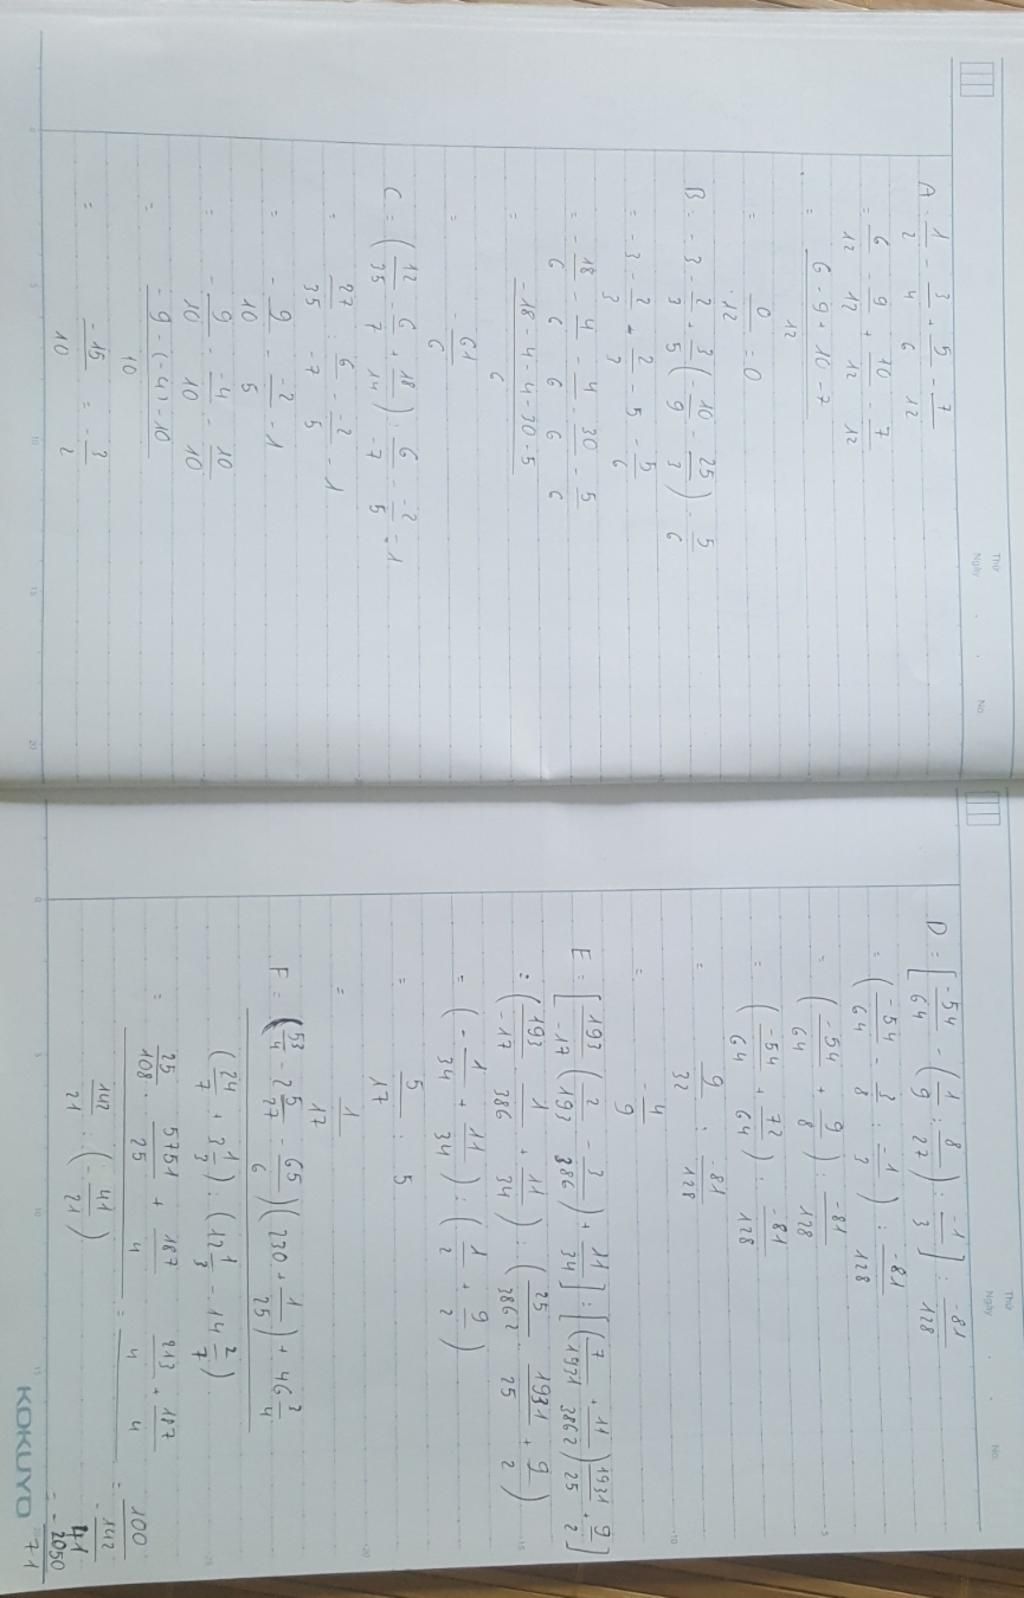 Thứ
Ngày . . No.
A = 1/2 - 3/4 + 5/6 - 7/12
= 6/12 - 9/12 + 10/12 - 7/12
= (6 - 9 + 10 - 7)/12
= 0/12 = 0
B = - 3 - 2/3 + 3/5 (- 10/9 - 25/3) - 5/6
= (-18 - 4 - 4 - 30 - 5)/6
= - 61/6
C = (12/35 - 6/7 + 18/14) : 6/-7 - -2/5 - 1
= 27/35 : 6/-7 - -2/5 - 1
= - 9/10 - -2/5 - 1
= - 9/10 - -4/10 - 10/10
= (- 9 - (-4) - 10)/10
= -15/10 = - 3/2
Thứ
Ngày . . No.
D = [-54/64 - (1/9 : 8/27) : -1/3] : -81/128
= (-54/64 - 3/8 : -1/3) : -81/128
= (-54/64 + 9/8) : -81/128
= (-54/64 + 72/64) : -81/128
= 9/32 : -81/128
= - 4/9
E = [193/-17 (2/193 - 3/386) + 11/34] : [(7/1931 + 11/3862) 1931/25 + 9/2]
= (193/-17 . 1/386 + 11/34) : (25/3862 . 1931/25 + 9/2)
= (- 1/34 + 11/34) : (1/2 + 9/2)
= 5/17 : 5
= 1/17
(24/7 + 3 1/3) : (12 1/3 - 14 2/7)
142/21 : (- 41/21)
= - 2050/71
KOKUYO